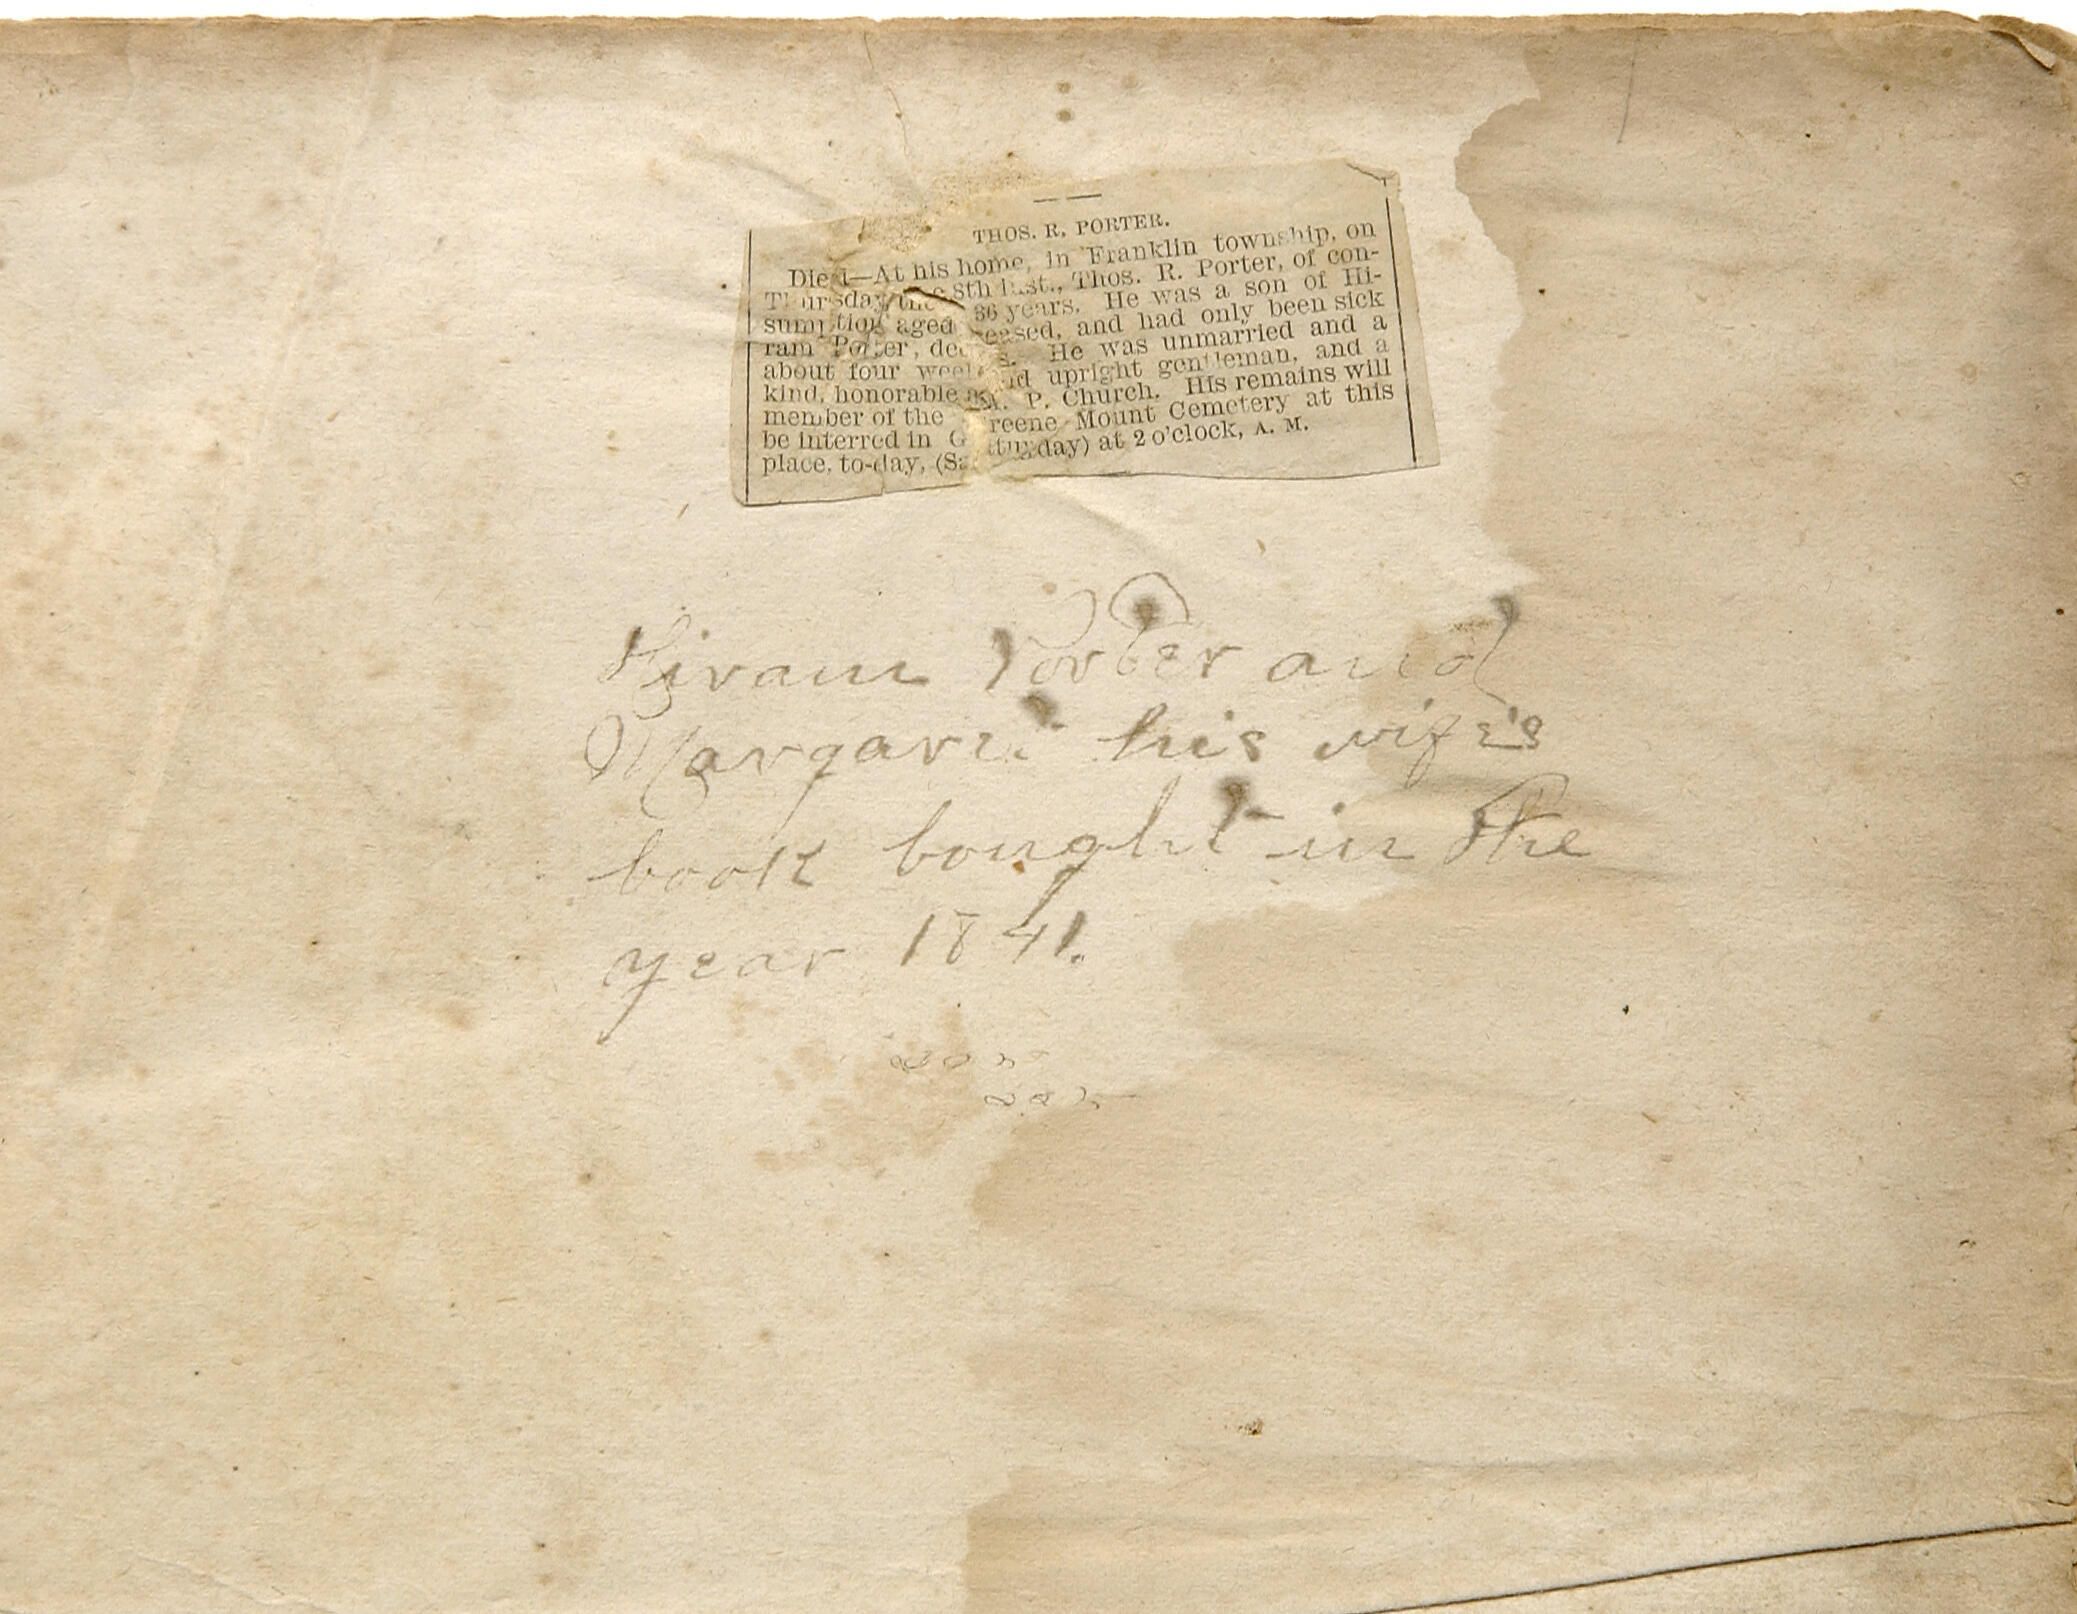 THOS. R. PORTER.
Died—At his home, in Franklin township, on
Thursday the 8th inst., Thos. R. Porter, of con-
sumption aged 36 years. He was a son of Hi-
ram Porter, deceased, and had only been sick
about four weeks. He was unmarried and a
kind, honorable and upright gentleman, and a
member of the M. P. Church. His remains will
be interred in Greene Mount Cemetery at this
place, to-day, (Saturday) at 2 o'clock, A. M.
Hiram Porter and
Margaret his wife's
book bought in the
year 1841.